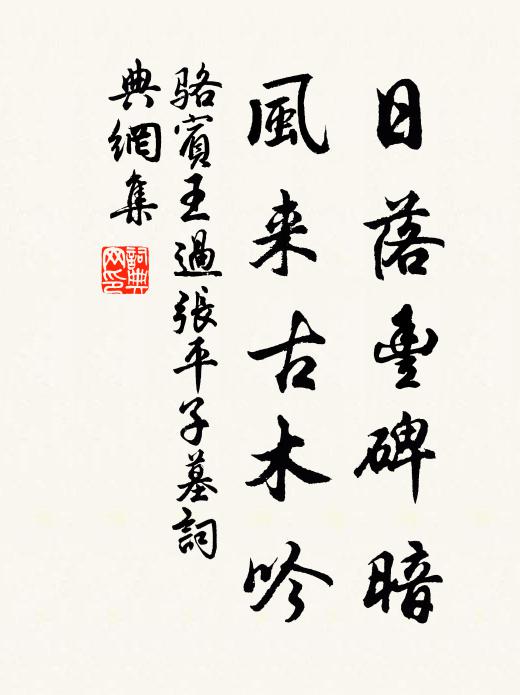 日落豐碑暗
風来古木吟
駱賓王過張平子墓詞
典網集
詞典網印